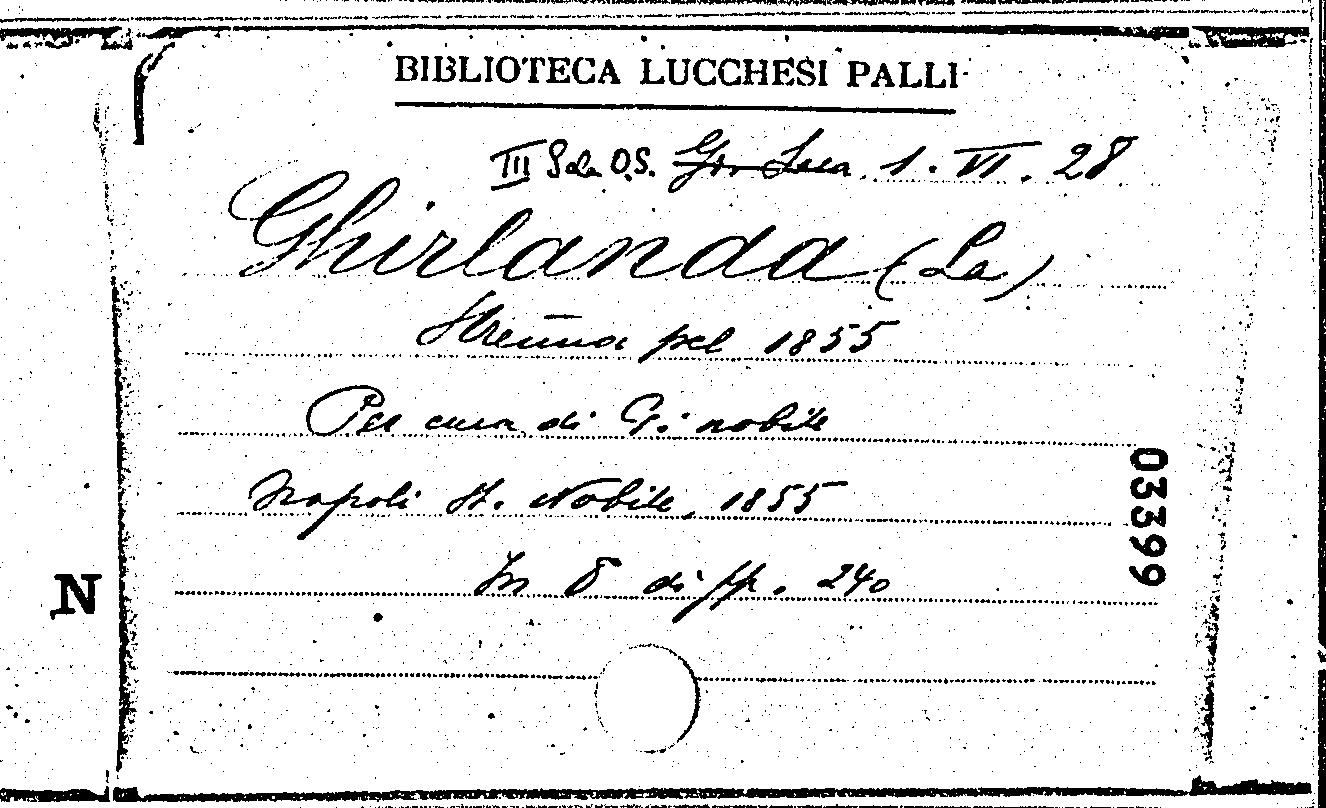 BIBLIOTECA LUCCHESI PALLI
III Sala O.S. Gr. Sala 1. VI. 28
Ghirlanda (La)
Strenna pel 1855
Per cura di G. Nobile
Napoli St. Nobile, 1855
In 8 di pp. 240
03399
N